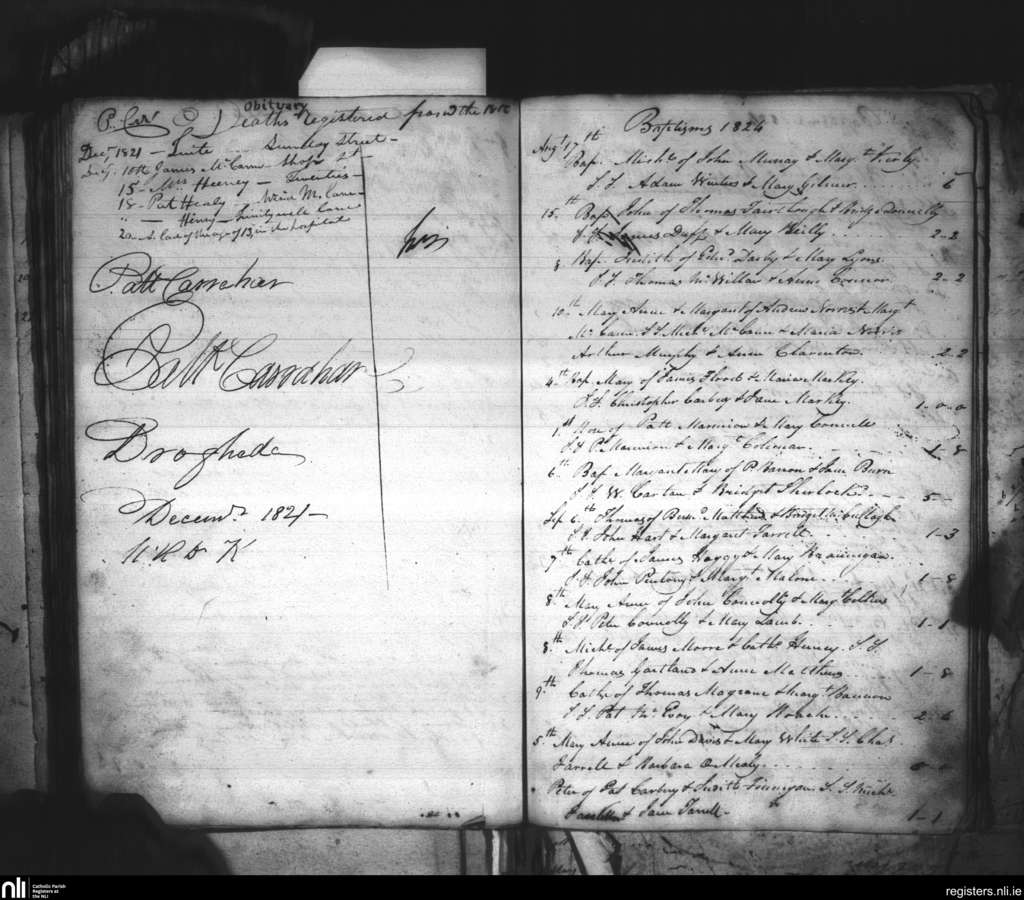 Obituary
Deaths registered from the
Decr 1821 — Suite Sunday Street —
James McCann Shop St
15 — Mrs Heeney — Twenties —
18 — Pat Healy — Lane
" — Henry — Lane
20 — of 13, in the hospital
Patt Carrohar
Patk Carrohar
Drogheda
Decemr 1821 —
Baptisms 1824
Augt 17th
Bap. Michl of John Murray & Margt
S.S. Adam Winters & Mary Gilmer 6
15th Bap John of Thomas & Bridgt Donnelly
S.S. James Duff & Mary Reilly 2-2
8 Bap. Judith of Edwd Darby & Mary Lyons
S.S. Thomas & Anne Connor 2-2
10th Mary Anne & Margaret of Andrew Norris & Margt
McCann S.S. Michl McCann & Maria Norris
Arthur Murphy & Anne Clarenton 2-2
4th Bap Mary of James & Maria Markey
S.S. Christopher Carbery & Jane Markey 1-0-0
1st of Patt Marmion & Mary Connell
S.S. Pk Marmion & Margt Coleman 1-8
6th Bap Margaret Mary of P. Bannon & Jane Burn
S.S. W. Cartan & Bridget Sherlock 5-
Sep 6th Thomas of Bernd Matthews & Bridget McCullagh
S.S. John Hart & Margaret Farrell 1-3
7th Cathe of James & Mary
S.S. John Pentony & Margt Malone 1-8
8th Mary Anne of John Connolly & Margt Collins
S.S. Peter Connolly & Mary Lamb 1-1
8th Michl of James Moore & Cathe Heeney S.S.
Thomas Gartland & Anne Matthews 1-8
9th Cathe of Thomas Magrane & Margt Bannon
S.S. Pat McEvoy & Mary Roache 2-6
5th Mary Anne of John Davis & Mary White S.S. Chas
Farrell & Barbara
Peter of Pat Carbery & Judith Finnegan S.S. Michl
& Jane Farrell 1-1
nli
Catholic Parish
Registers at
the NLI
registers.nli.ie